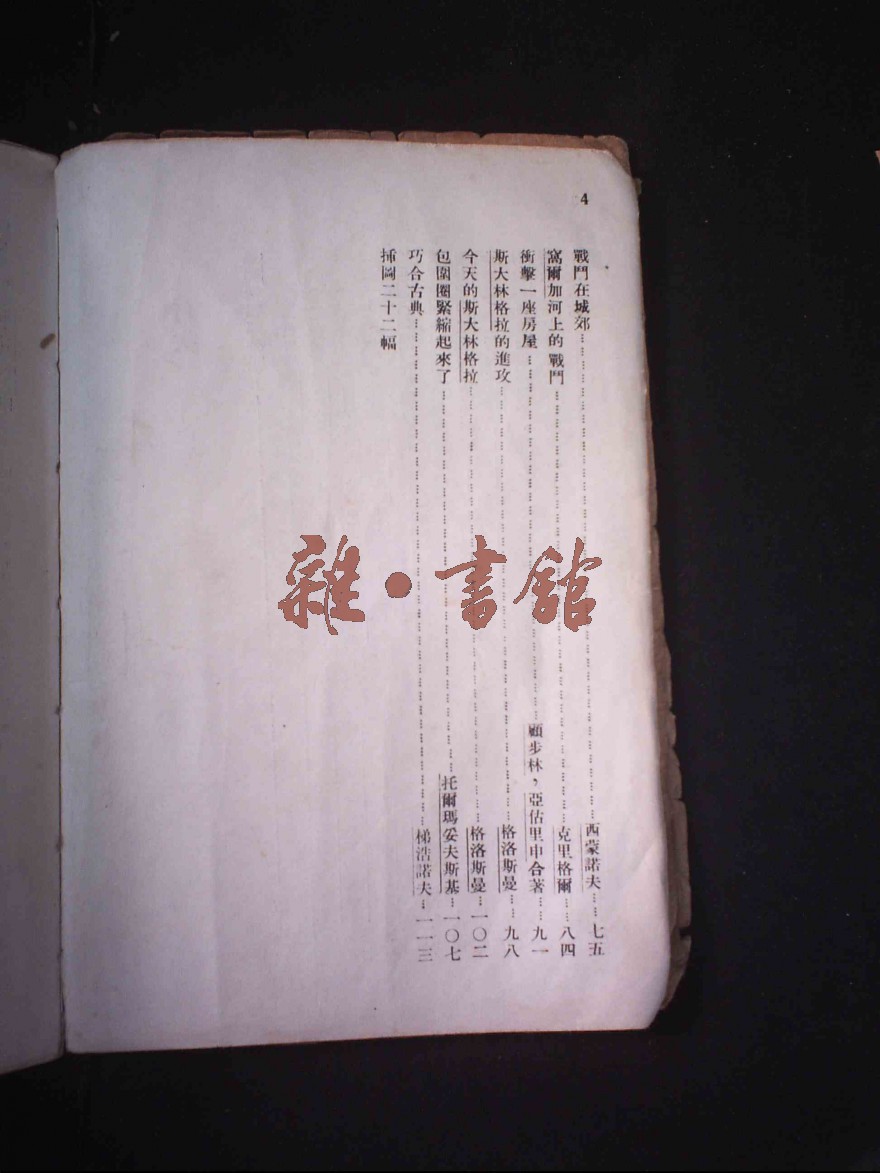 4
戰鬥在城郊……西蒙諾夫……七五
窩爾加河上的戰鬥……克里格爾……八四
衝擊一座房屋……顧步林，亞佔里申合著……九一
斯大林格拉的進攻……格洛斯曼……九八
今天的斯大林格拉……格洛斯曼……一〇二
包圍圈緊縮起來了……托爾瑪妥夫斯基……一〇七
巧合古典……梯浩諾夫……一一三
揷圖二十二幅
雜·書館